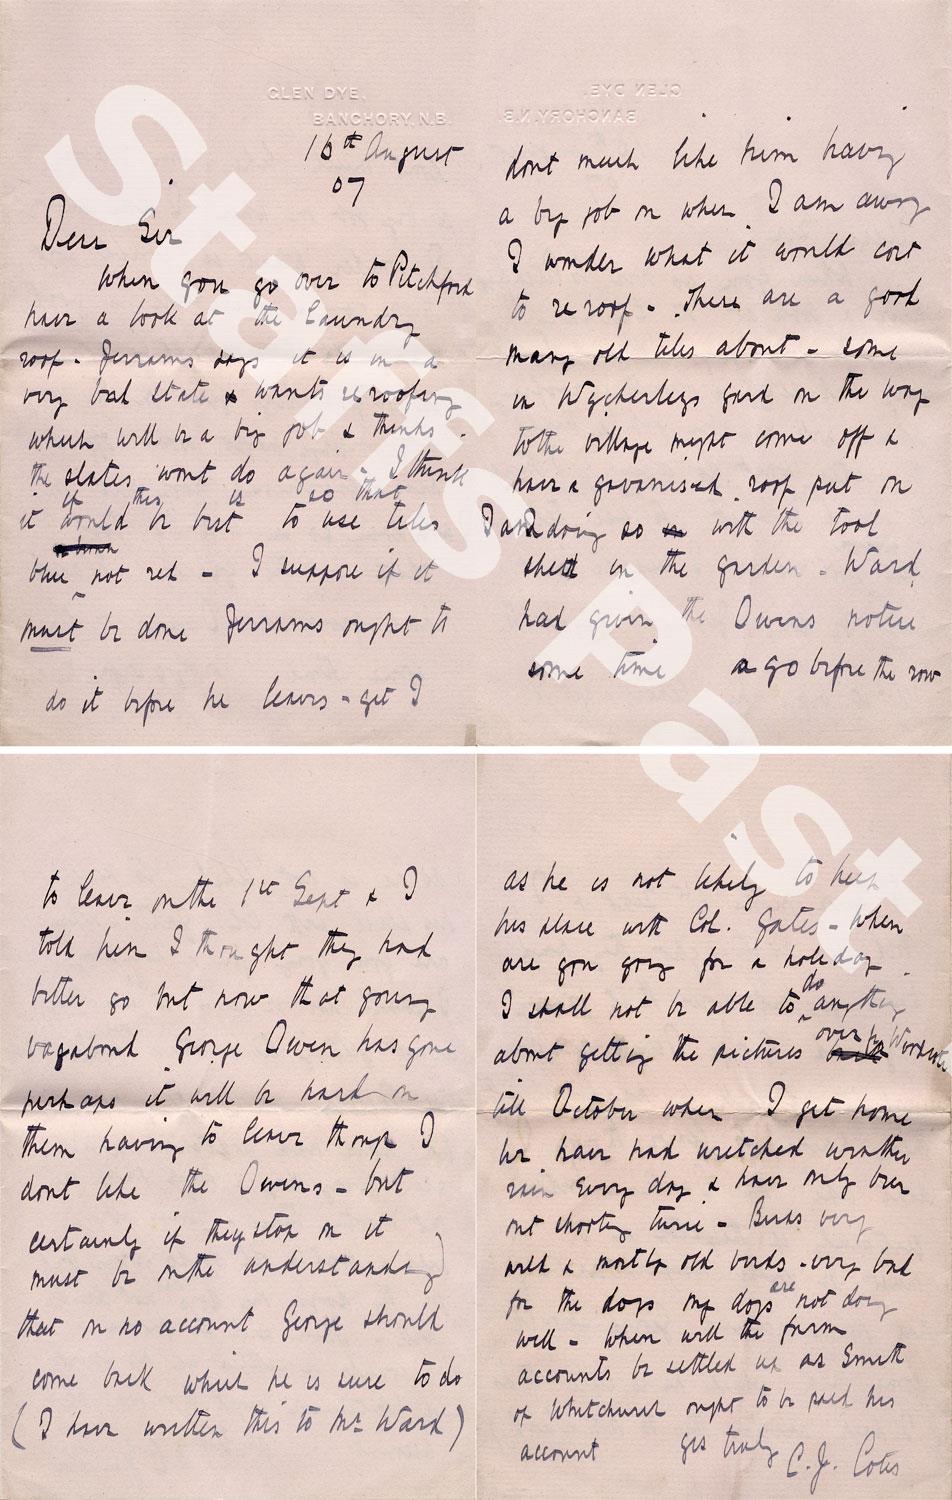 GLEN DYE,
BANCHORY, N.B.
16th August
07
Dear Sir
When you go over to Pitchford
have a look at the Laundry
roof - Jerrams says it is in a
very bad state & wants reroofing
which will be a big job & thinks
the slates wont do again - I think
if this is so that
it would be best to use tiles
blue not red - I suppose if it
must be done Jerrams ought to
do it before he leaves - yet I
dont much like him having
a big job on when I am away
I wonder what it would cost
to re roof - There are a good
many old tiles about - some
in Wycherleys yard on the way
to the village might come off &
have a galvanised roof put on
I am doing so with the tool
shed in the garden - Ward
had given the Owens notice
some time ago before the row
to leave on the 1st Sept & I
told him I thought they had
better go but now that young
vagabond George Owen has gone
perhaps it will be hard on
them having to leave though I
dont like the Owens - but
certainly if they stop on it
must be on the understanding
that on no account George should
come back which he is sure to do
(I have written this to Mr Ward)
as he is not likely to keep
his place with Col. Yates - When
are you going for a holiday
I shall not be able to do anything
about getting the pictures over
till October when I get home
We have had wretched weather
rain every day & have only been
out shooting twice - Birds very
wild & mostly old birds - very bad
for the dogs my dogs are not doing
well - When will the farm
accounts be settled up as Smith
of Whitchurch ought to be paid his
account yrs truly C. J. Cotes
Staffs Past